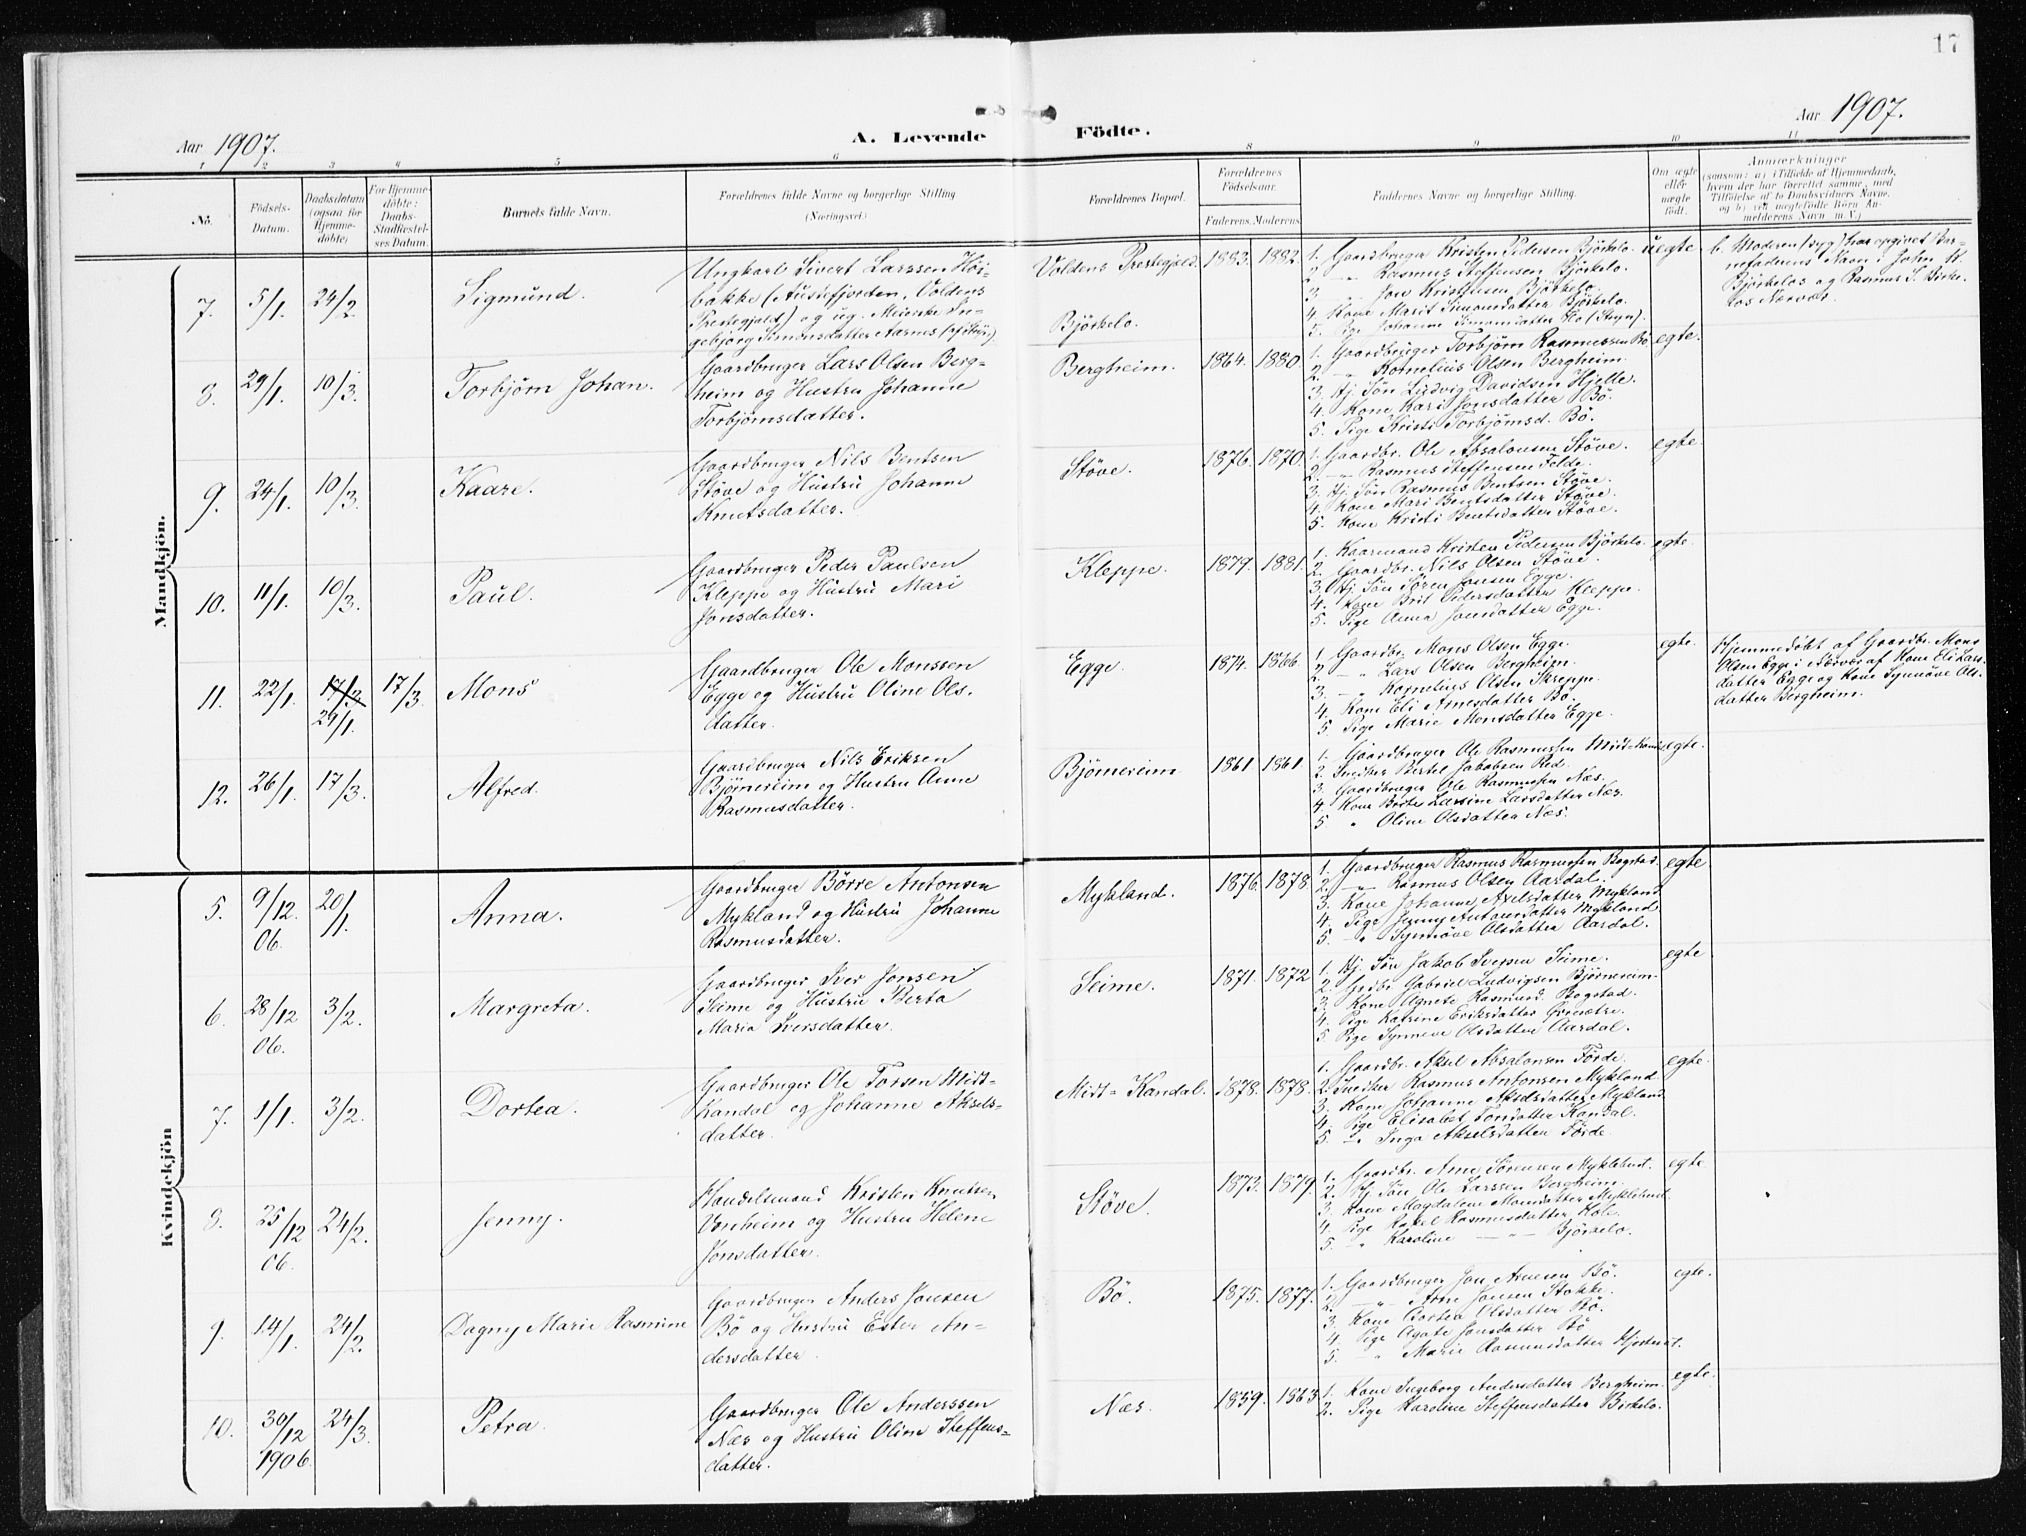 17
Aar 1907.
A. Levende Födte.
Aar 1907.
1 2 3 4 5 6 8 9 10 11
No.
Födsels-Datum.
Daabsdatum (ogsaa for Hjemme-döbte)
For Hjemme-döbte: Daabs-Stadfæstel-ses Datum.
Barnets fulde Navn.
Forældrenes fulde Navne og borgerlige Stilling (Næringsvei.)
Forældrenes Bopæl.
Forældrenes Födselsaar.
Faderens. Moderens.
Faddernes Navne og borgerlige Stilling.
Om ægte eller uægte födt.
Anmærkninger
(saasom: a) i Tilfælde af Hjemmedaab,
hvem der har forrettet samme, med
Tilföielse af to Daabsvidners Navne,
og b) ved uægtefödte Börn An-
melderens Navn m. V.)
Mandkjön.
7. 5/1 24/2 Sigmund.
Ungkarl Sivert Larssen Höi-
bakke (Austefjorden, Voldens
Prestegjeld) og ug. Meierske In-
gebjörg Simonsdatter Aarnes
Voldens Prestegjeld.
Björkelo.
1883. 1882.
1. Gaardbruger Kristen Pedersen Björkelo.
2. —"— Rasmus Steffensen Björkelo.
3. —"— Jon Kristensen Björkelo.
4. Kone Marit Simonsdatter Björkelo.
5. Pige Johanne Simonsdatter Flo (Stryn).
uegte
b. Moderen (syg) har opgivet Bar-
nefaderens Navn i John K.
Björkelos og Rasmus S. Birke-
los Nærvær.
8. 29/1 10/3 Torbjørn Johan.
Gaardbruger Lars Olsen Berg-
heim og Hustru Johanne
Torbjørnsdatter.
Bergheim.
1864. 1880.
1. Gaardbruger Torbjørn Rasmussen Bö
2. —"— Kornelius Olsen Bergheim.
3. Hj. Søn Ludvig Davidsen Hjelle.
4. Kone Kari Jonsdatter Bö.
5. Pige Kristi Torbjørnsd. Bö.
egte.
9. 24/1 10/3 Kaare.
Gaardbruger Nils Bentsen
Støve og Hustru Johanne
Knutsdatter.
Støve.
1876. 1870.
1. Gaardbr. Ole Absalonsen Støve.
2. —"— Rasmus Steffensen Felde.
3. Hj. Søn Rasmus Bentsen Støve.
4. Kone Mari Bentsdatter Støve.
5. Kone Kristi Bentsdatter Støve.
egte
10. 11/1 10/3 Paul.
Gaardbruger Peder Paulsen
Kleppe og Hustru Mari
Jonsdatter.
Kleppe.
1879. 1881.
1. Kaarmand Kristen Pedersen Björkelo.
2. Gaardbr. Nils Olsen Støve.
3. Hj. Søn Søren Jonsen Egge.
4. Kone Brit Pedersdatter Kleppe.
5. Pige Anna Jonsdatter Egge.
egte.
11. 22/1 17/3 29/1. 17/3 Mons
Gaardbruger Ole Monssen
Egge og Hustru Oline Ols-
datter.
Egge.
1874. 1866.
1. Gaardbr. Mons Olsen Egge.
2. —"— Lars Olsen Bergheim.
3. —"— Kornelius Olsen Skreppe.
4. Kone Eli Arnesdatter Bö.
5. Pige Marie Monsdatter Egge.
egte.
Hjemmedøbt af Gaardbr. Mons
Olsen Egge i Nærvær af Kone Eli Lars-
datter Egge og Kone Synnøve Ols-
datter Bergheim.
12. 26/1 17/3. Alfred.
Gaardbruger Nils Eriksen
Bjørnereim og Hustru Anne
Rasmusdatter.
Bjørnereim
1861 1861
1. Gaardbruger Ole Rasmussen Midt-Kandal
2. Snedker Bertel Jakobsen Red.
3. Gaardbruger Ole Rasmussen Næs.
4. Kone Berte Larsine Larsdatter Næs.
5. " Oline Olsdatter Næs.
egte.
Kvindekjön
5. 9/12 06. 20/1. Anna.
Gaardbruger Børre Antonsen
Mykland og Hustru Johanne
Rasmusdatter.
Mykland.
1876. 1878.
1. Gaardbruger Rasmus Rasmussen Bogstad.
2. —"— Rasmus Olsen Aardal.
3. Kone Johanne Axelsdatter Mykland
4. Pige Jenny Antonsdatter Mykland.
5. —"— Synnöve Olsdatter Aardal.
egte
6. 28/12 06. 3/2. Margreta.
Gaardbruger Iver Jonsen
Seime og Hustru Berta
Maria Iversdatter.
Seime.
1871. 1872
1. Hj. Søn Jakob Iversen Seime.
2. Grdbr. Gabriel Ludvigsen Bjørnereim.
3. Kone Agnete Rasmusd. Bogstad.
4. Pige Katrine Eriksdatter Grimsetre.
5. Pige Synneve Olsdatter Aardal.
egte.
7. 1/1 3/2. Dortea.
Gaardbruger Ole Torsen Midt-
Kandal og Johanne Aksels-
datter.
Midt-Kandal.
1878. 1878.
1. Gaardbr. Aksel Absalonsen Förde.
2. Snedker Rasmus Antonsen Mykland
3. Kone Johanne Akselsdatter Mykland
4. Pige Elisabet Torsdatter Kandal.
5. —"— Inga Akselsdatter Förde.
egte.
8. 25/12 06. 24/2. Jenny.
Handelsmand Kristen Knutsen
Vonheim og Hustru Helene
Jonsdatter.
Støve.
1873. 1879.
1. Gaardbr. Arne Sørensen Myklebust.
2. Hj. Søn Ole Larssen Bergheim.
3. Kone Magdalene Monsdatter Myklebust.
4. Pige Rakel Rasmusdatter Hole.
5. —"— Karoline —"— Björkelo.
egte
9. 14/1 24/2. Dagny Marie Rasmine
Gaardbruger Anders Jonsen
Bö og Hustru Ester An-
dersdatter.
Bö.
1875. 1877.
1. Gaardbruger Jon Arnesen Bö.
2. —"— Arne Jonsen Stokke.
3. Kone Dortea Olsdatter Bö.
4. Pige Agate Jonsdatter Bö
5. —"— Marie Rasmusdatter
egte.
10. 30/12 1906. 24/3. Petra.
Gaardbruger Ole Anderssen
Næs og Hustru Oline Steffens-
datter.
Næs.
1859. 1863
1. Kone Ingeborg Andersdatter Bergheim.
2. Pige Karoline Steffensdatter Birkelo.
egte.